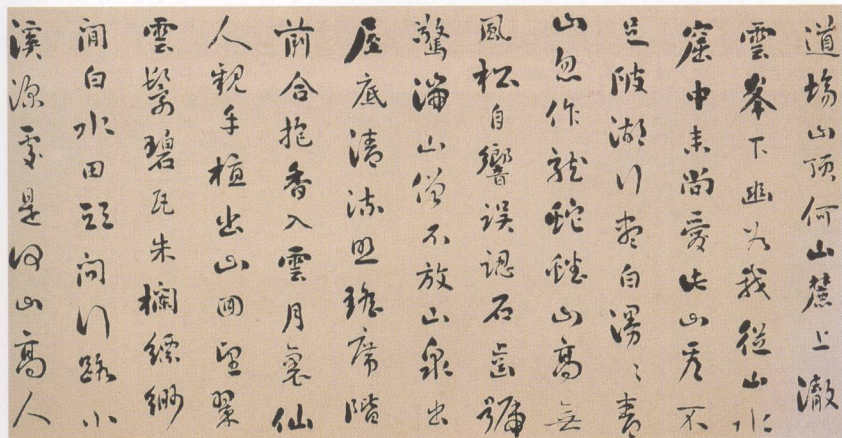 道場山頂何山麓上澈
雲峯下幽谷我從山水
窟中來尚愛此山看不
足陂湖行盡白漫〻青
山忽作龍蛇蟠山高無
風松自響誤認石齒號
驚湍山僧不放山泉出
屋底清池照瑤席階
前合抱香入雲月裏仙
人親手植出山回望翠
雲鬟碧瓦朱欄縹緲
間白水田頭問行路小
溪深處是何山高人